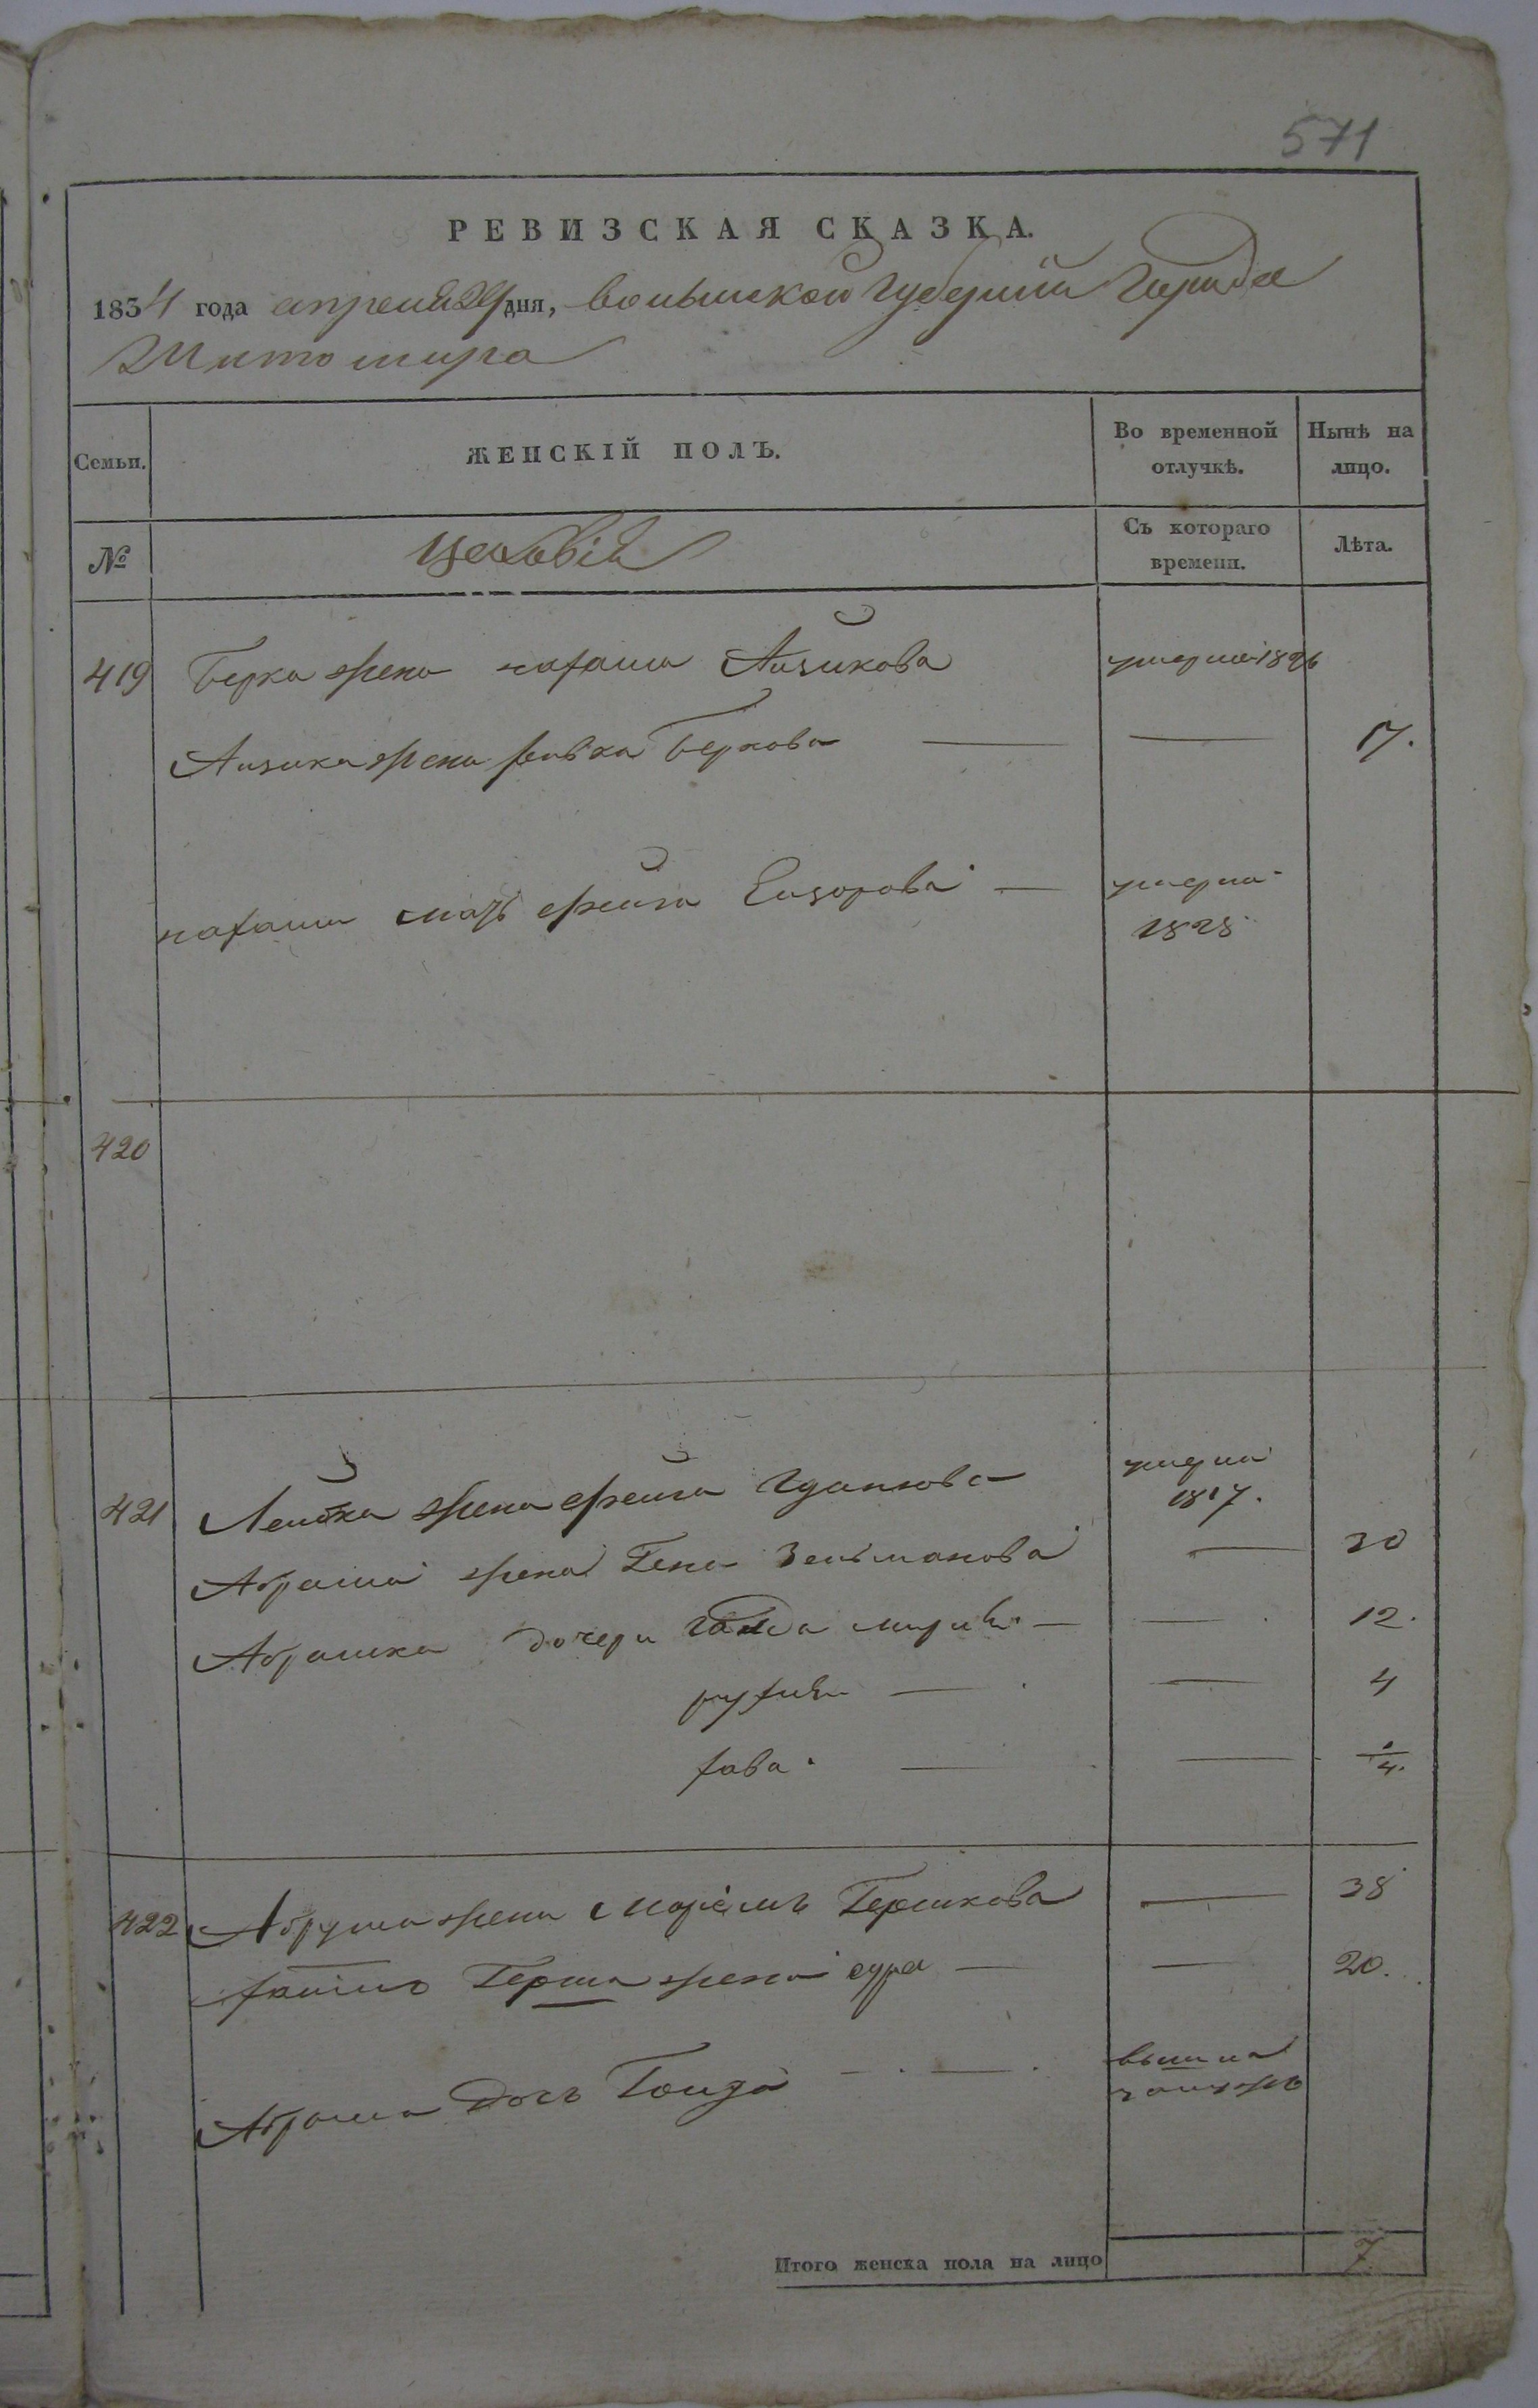 571
РЕВИЗСКАЯ СКАЗКА.
1834 года апреля 29 дня, волынской губернiи города
Житомира
Семьи. ЖЕНСКІЙ ПОЛЪ. Во временной отлучкѣ. Нынѣ на лицо.
№ Съ котораго времени. Лѣта.
419 Берка жена Айзикова умерла 1826
Аизика жена ривка Беркова — — 17.
мать фейга — умерла 1828
420
421 Лейбка жена фейга умерла 1817.
Абрама жена Гена Зельманова — 30
Абрамка дочери — — 12.
— — 4
хава — — 1/4.
422 жена Маріемъ Гершкова — 38
Герша жена сура — — 20.
Абрама дочь — — вышла замужъ
Итого женска пола на лицо 7